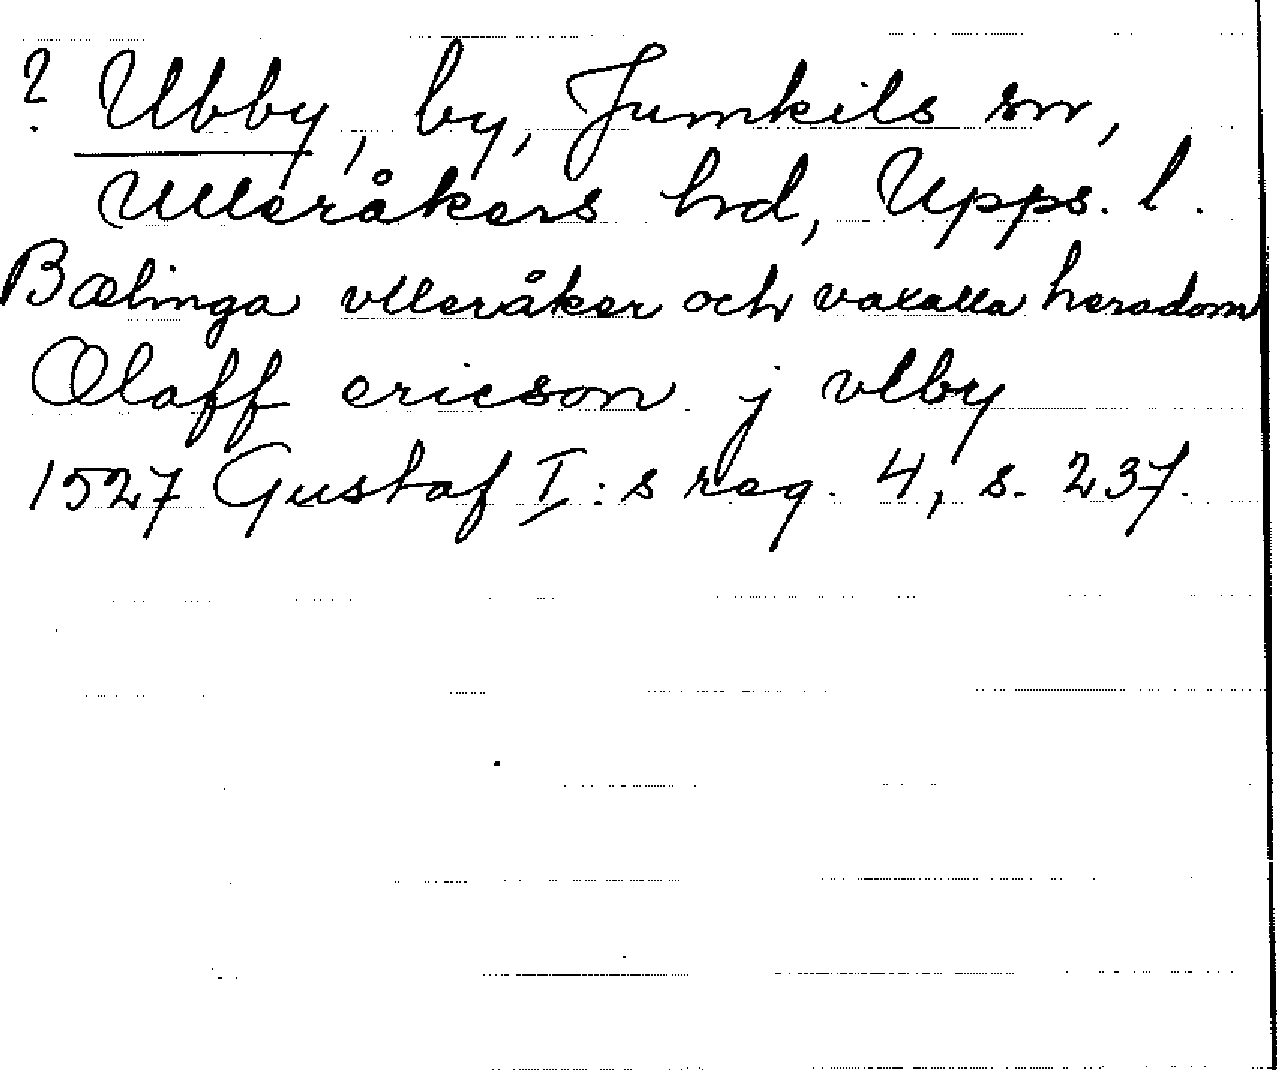 ? Ubby, by, Jumkils sn,
Ulleråkers hd, Upps. l.
Bælinga vlleråker och vaxalla heradom
Olaff ericson j vlby
1527 Gustaf I:s reg. 4, s. 237.